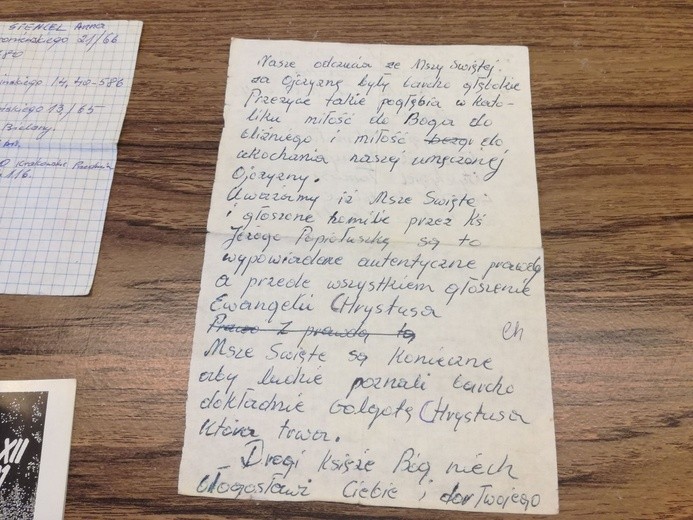 SPENCEL Anna
21/66
14, 40-586
13/65
Bielany.
Krakowskie
1/6.
XII
Nasze odczucia ze Mszy Świętej.
za Ojczyznę były bardzo głębokie
Przeżycie takie pogłębia w kato-
liku miłość do Boga do
bliźniego i miłość do
ukochania naszej umęczonej
Ojczyzny.
Uważamy iż Msze Święte
i głoszone homilie przez Kś
Jerzego Popiełuszkę są to
wypowiadane autentyczne prawdy
a przede wszystkiem głoszenie
Ewangelii CHrystusa
Prawo z prawdą tą
Ch
Msze Święte są Konieczne
aby ludzie poznali bardzo
dokładnie Golgotę CHrystusa
która trwa.
Drogi Księże Bóg niech
błogosławi Ciebie i dar Twojego